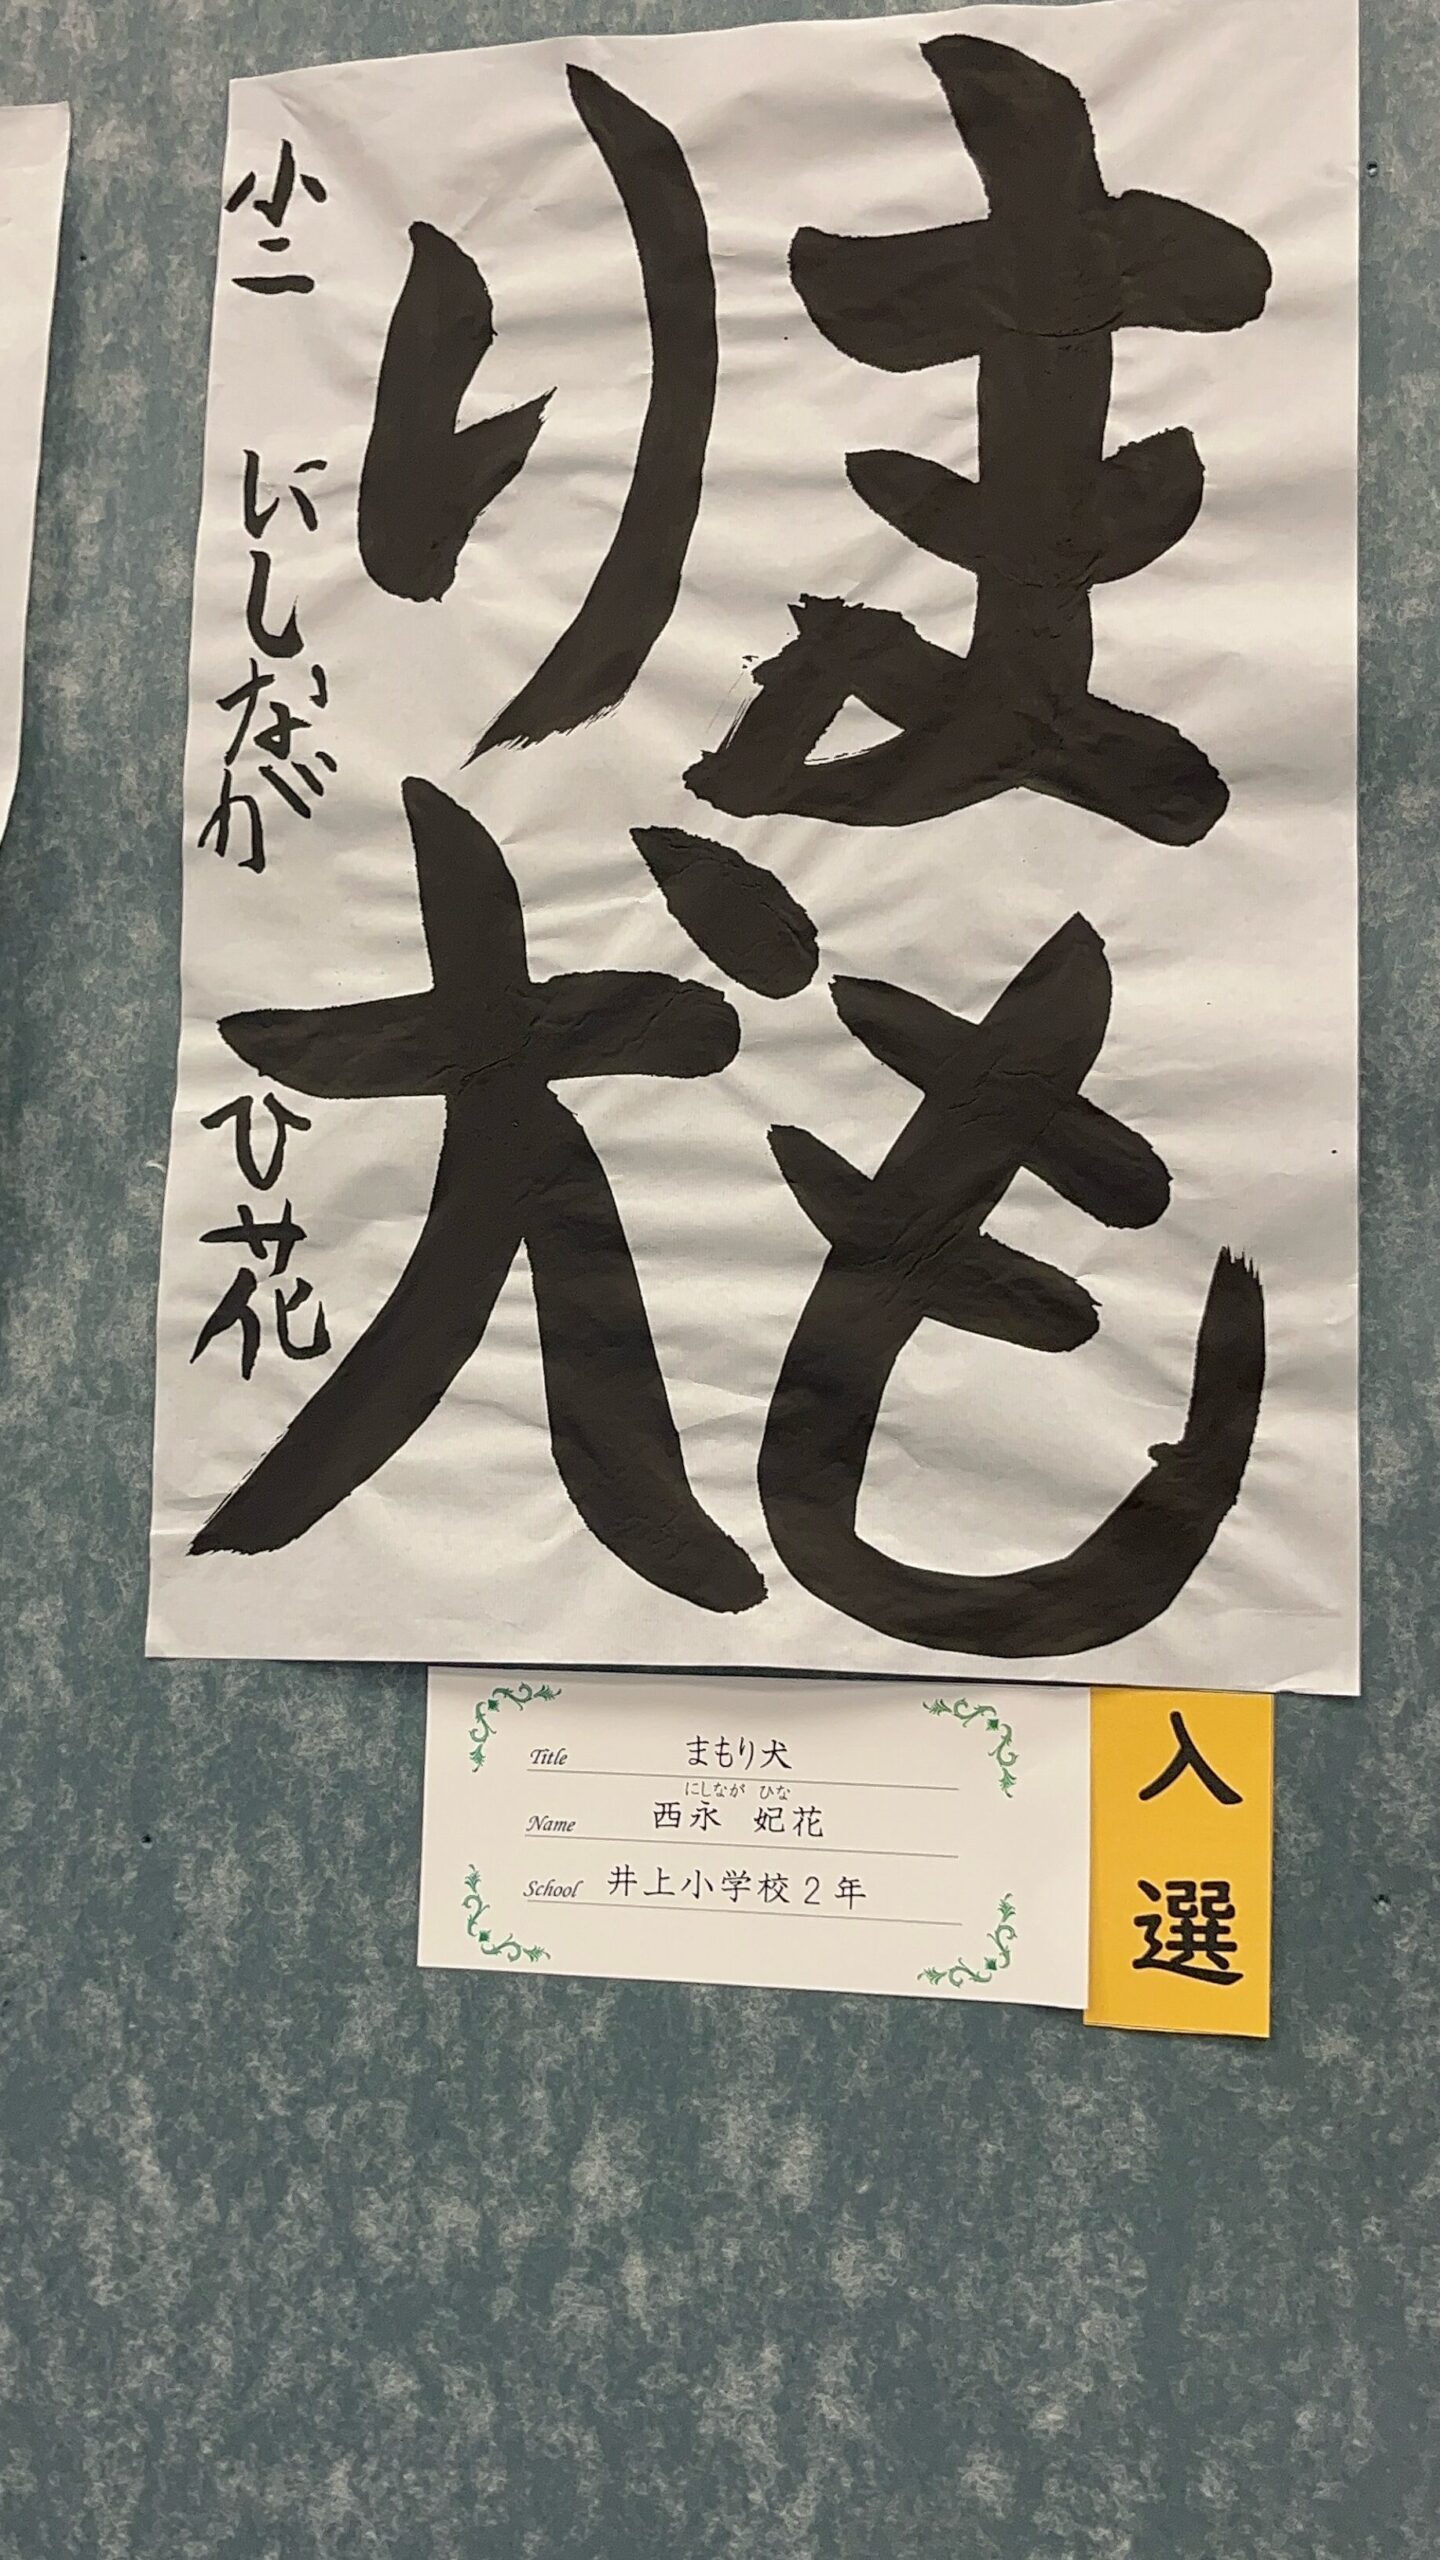 まも
り犬
小二 にしなが ひ花
Title まもり犬
にしなが ひな
Name 西永 妃花
School 井上小学校2年
入選